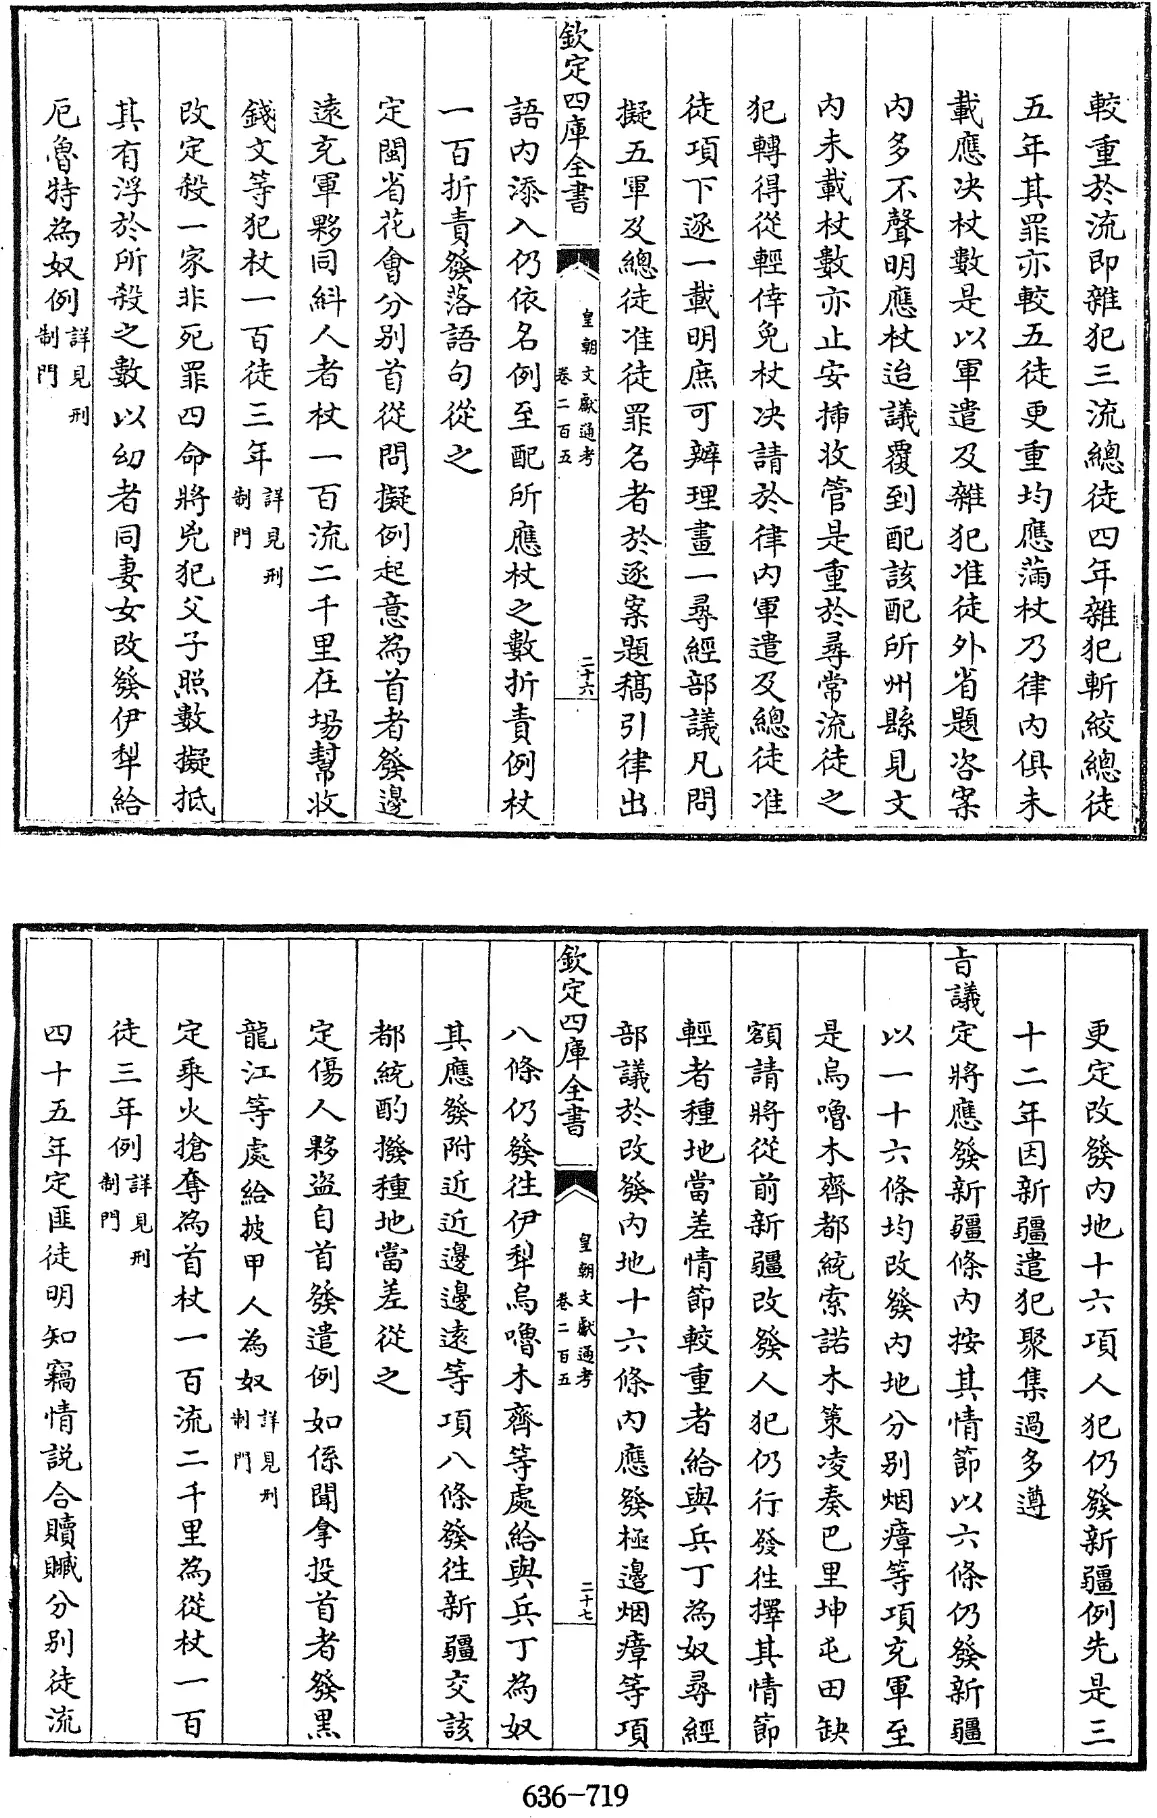 較重於流即雜犯三流總徒四年雜犯斬絞總徒
五年其罪亦較五徒更重均應滿杖乃律内俱未
載應決杖數是以軍遣及雜犯准徒外省題咨案
内多不聲明應杖迨議覆到配該配所州縣見文
内未載杖數亦止安揷收管是重於尋常流徒之
犯轉得從輕倖免杖決請於律内軍遣及總徒准
徒項下逐一載明庶可辨理畫一尋經部議凡問
擬五軍及總徒准徒罪名者於逐案題稿引律出
欽定四庫全書
皇朝文獻通考
卷二百五
二十六
語内添入仍依名例至配所應杖之數折責例杖
一百折責發落語句從之
定閩省花會分别首從問擬例起意為首者發邊
遠充軍夥同糾人者杖一百流二千里在場幫收
錢文等犯杖一百徒三年詳見刑制門
改定殺一家非死罪四命將兇犯父子照數擬抵
其有浮於所殺之數以㓜者同妻女改發伊犂給
厄魯特為奴例詳見刑制門
更定改發内地十六項人犯仍發新疆例先是三
十二年因新疆遣犯聚集過多遵
旨議定將應發新疆條内按其情節以六條仍發新疆
以一十六條均改發内地分别烟瘴等項充軍至
是烏嚕木齊都統索諾木策凌奏巴里坤屯田缺
額請將從前新疆改發人犯仍行發往擇其情節
輕者種地當差情節較重者給與兵丁為奴尋經
部議於改發内地十六條内應發極邊烟瘴等項
欽定四庫全書
皇朝文獻通考
卷二百五
二十七
八條仍發往伊犂烏嚕木齊等處給與兵丁為奴
其應發附近近邊邊遠等項八條發往新疆交該
都統酌撥種地當差從之
定傷人夥盗自首發遣例如係聞拿投首者發黑
龍江等處給披甲人為奴詳見刑制門
定乘火搶奪為首杖一百流二千里為從杖一百
徒三年例詳見刑制門
四十五年定匪徒明知竊情説合贖贓分别徒流
636-719